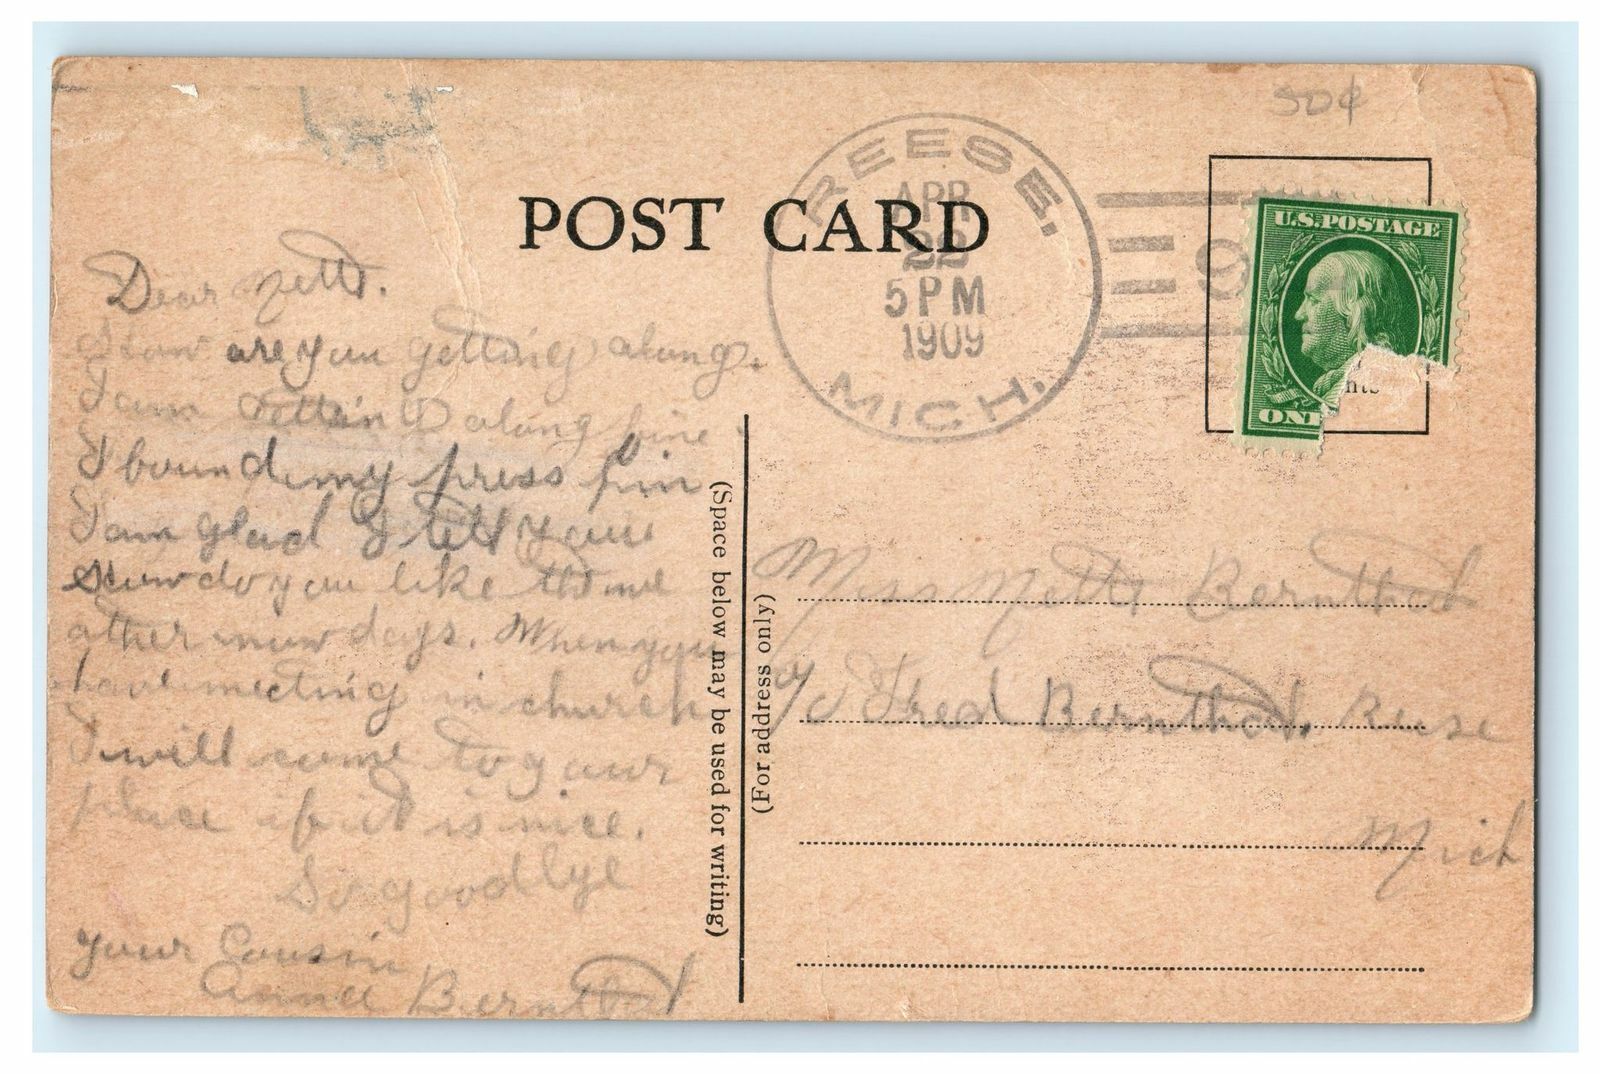 50¢
REESE.
APR
22
5 PM
1909
MICH.
9
U.S. POSTAGE
ON
nts
POST CARD
Dear Netta.
How are you getting along.
I am gettin along fine.
I bound my press pin
I am glad I tell you
How do you like the
other now days. When you
have meeting in church
I will come to your
place if it is nice.
So good bye
your Cousin
Anna Bernthal
(Space below may be used for writing)
(For address only)
Miss Netta Bernthal
c/o Fred Bernthal. Reese
Mich